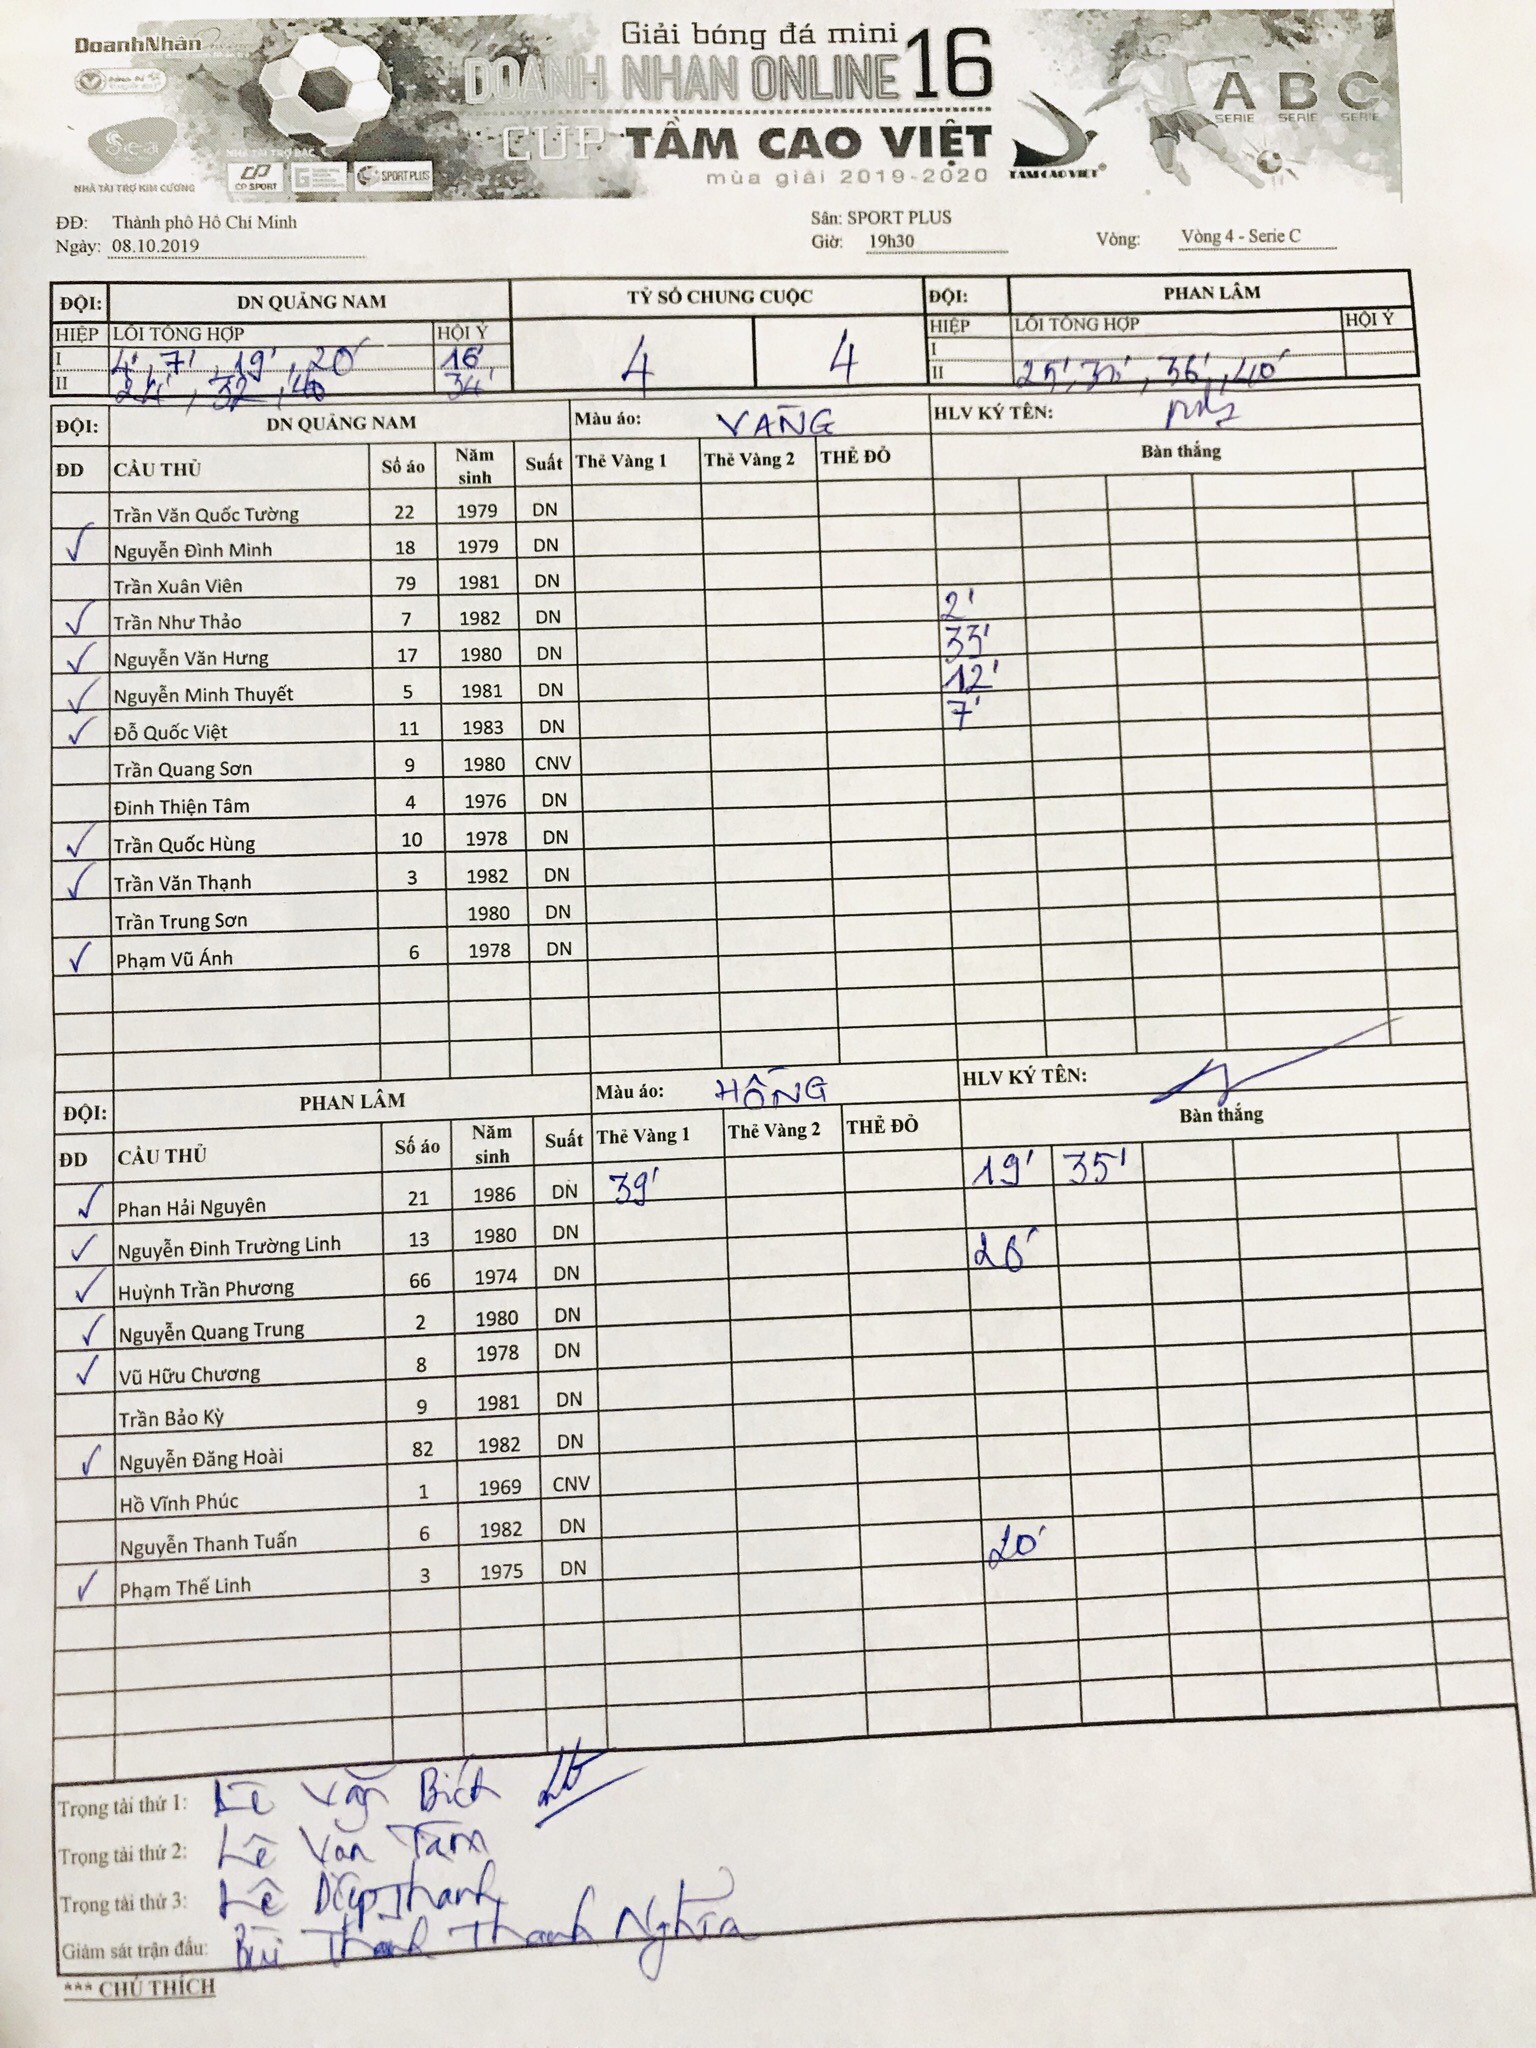 DoanhNhân
Giải bóng đá mini
DOANH NHÂN ONLINE 16
CUP TẦM CAO VIỆT
mùa giải 2019-2020
Sea
NHÀ TÀI TRỢ KIM CƯƠNG
NHÀ TÀI TRỢ BẠC
CP SPORT
SPORT PLUS
TẦM CAO VIỆT®
A B C
SERIE SERIE SERIE
ĐĐ: Thành phố Hồ Chí Minh Sân: SPORT PLUS
Ngày: 08.10.2019 Giờ: 19h30 Vòng: Vòng 4 - Serie C
ĐỘI: DN QUẢNG NAM TỶ SỐ CHUNG CUỘC ĐỘI: PHAN LÂM
HIỆP LỖI TỔNG HỢP HỘI Ý 4 4 HIỆP LỖI TỔNG HỢP HỘI Ý
I 4', 7', 19', 20' 16' I
II 24', 32', 40 34' II 25', 30', 36', 40'
ĐỘI: DN QUẢNG NAM Màu áo: VÀNG HLV KÝ TÊN:
ĐD CẦU THỦ Số áo Năm sinh Suất Thẻ Vàng 1 Thẻ Vàng 2 THẺ ĐỎ Bàn thắng
Trần Văn Quốc Tường 22 1979 DN
✓ Nguyễn Đình Minh 18 1979 DN
Trần Xuân Viên 79 1981 DN
✓ Trần Như Thảo 7 1982 DN 2'
✓ Nguyễn Văn Hưng 17 1980 DN 33'
✓ Nguyễn Minh Thuyết 5 1981 DN 12'
✓ Đỗ Quốc Việt 11 1983 DN 7'
Trần Quang Sơn 9 1980 CNV
Đinh Thiện Tâm 4 1976 DN
✓ Trần Quốc Hùng 10 1978 DN
✓ Trần Văn Thạnh 3 1982 DN
Trần Trung Sơn 1980 DN
✓ Phạm Vũ Ánh 6 1978 DN
ĐỘI: PHAN LÂM Màu áo: HỒNG HLV KÝ TÊN:
ĐD CẦU THỦ Số áo Năm sinh Suất Thẻ Vàng 1 Thẻ Vàng 2 THẺ ĐỎ Bàn thắng
✓ Phan Hải Nguyên 21 1986 DN 39' 19' 35'
✓ Nguyễn Đinh Trường Linh 13 1980 DN
✓ Huỳnh Trần Phương 66 1974 DN 26'
✓ Nguyễn Quang Trung 2 1980 DN
✓ Vũ Hữu Chương 8 1978 DN
Trần Bảo Kỳ 9 1981 DN
✓ Nguyễn Đăng Hoài 82 1982 DN
Hồ Vĩnh Phúc 1 1969 CNV
Nguyễn Thanh Tuấn 6 1982 DN
✓ Phạm Thế Linh 3 1975 DN 20'
Trọng tài thứ 1: Lê Văn Bích
Trọng tài thứ 2: Lê Văn Tâm
Trọng tài thứ 3: Lê Diệp Thanh
Giám sát trận đấu: Bùi Thanh Thanh Nghĩa
*** CHÚ THÍCH